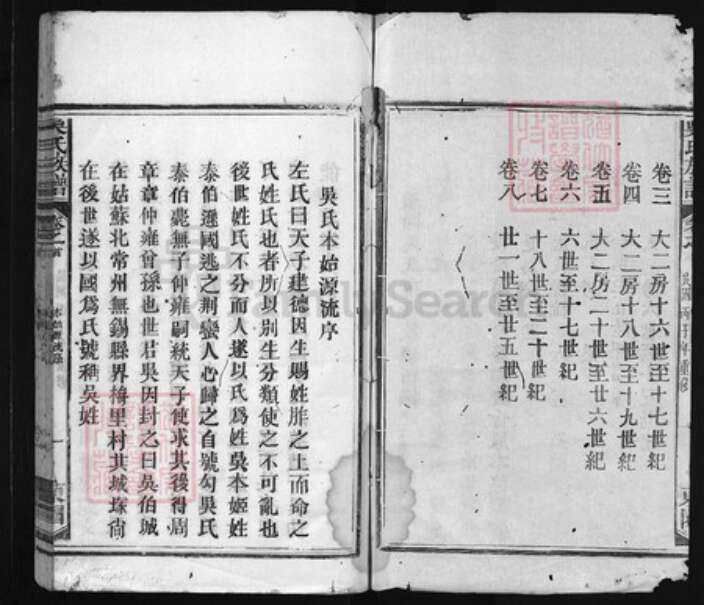 吳氏族譜
民國丙子年重修
卷三 大二房十六世至十七世紀
卷四 大二房十八世至十九世紀
卷五 大二房二十世至廿六世紀
卷六 六世至十七世紀
卷七 十八世至二十世紀
卷八 廿一世至廿五世紀
吳氏本始源流序
左氏曰天子建德因生賜姓胙之土而命之
氏姓氏也者所以別生分類使之不可亂也
後世姓氏不分而人遂以氏爲姓吳本姬姓
泰伯遜國逃之荆蠻人心歸之自號勾吳氏
泰伯薨無子仲雍嗣統天子使求其後得周
章章仲雍曾孫也世君吳因封之曰吳伯城
在姑蘇北常州無錫縣界梅里村其城垛尙
在後世遂以國爲氏號稱吳姓
吳氏族譜
卷之首
一
FamilySearch